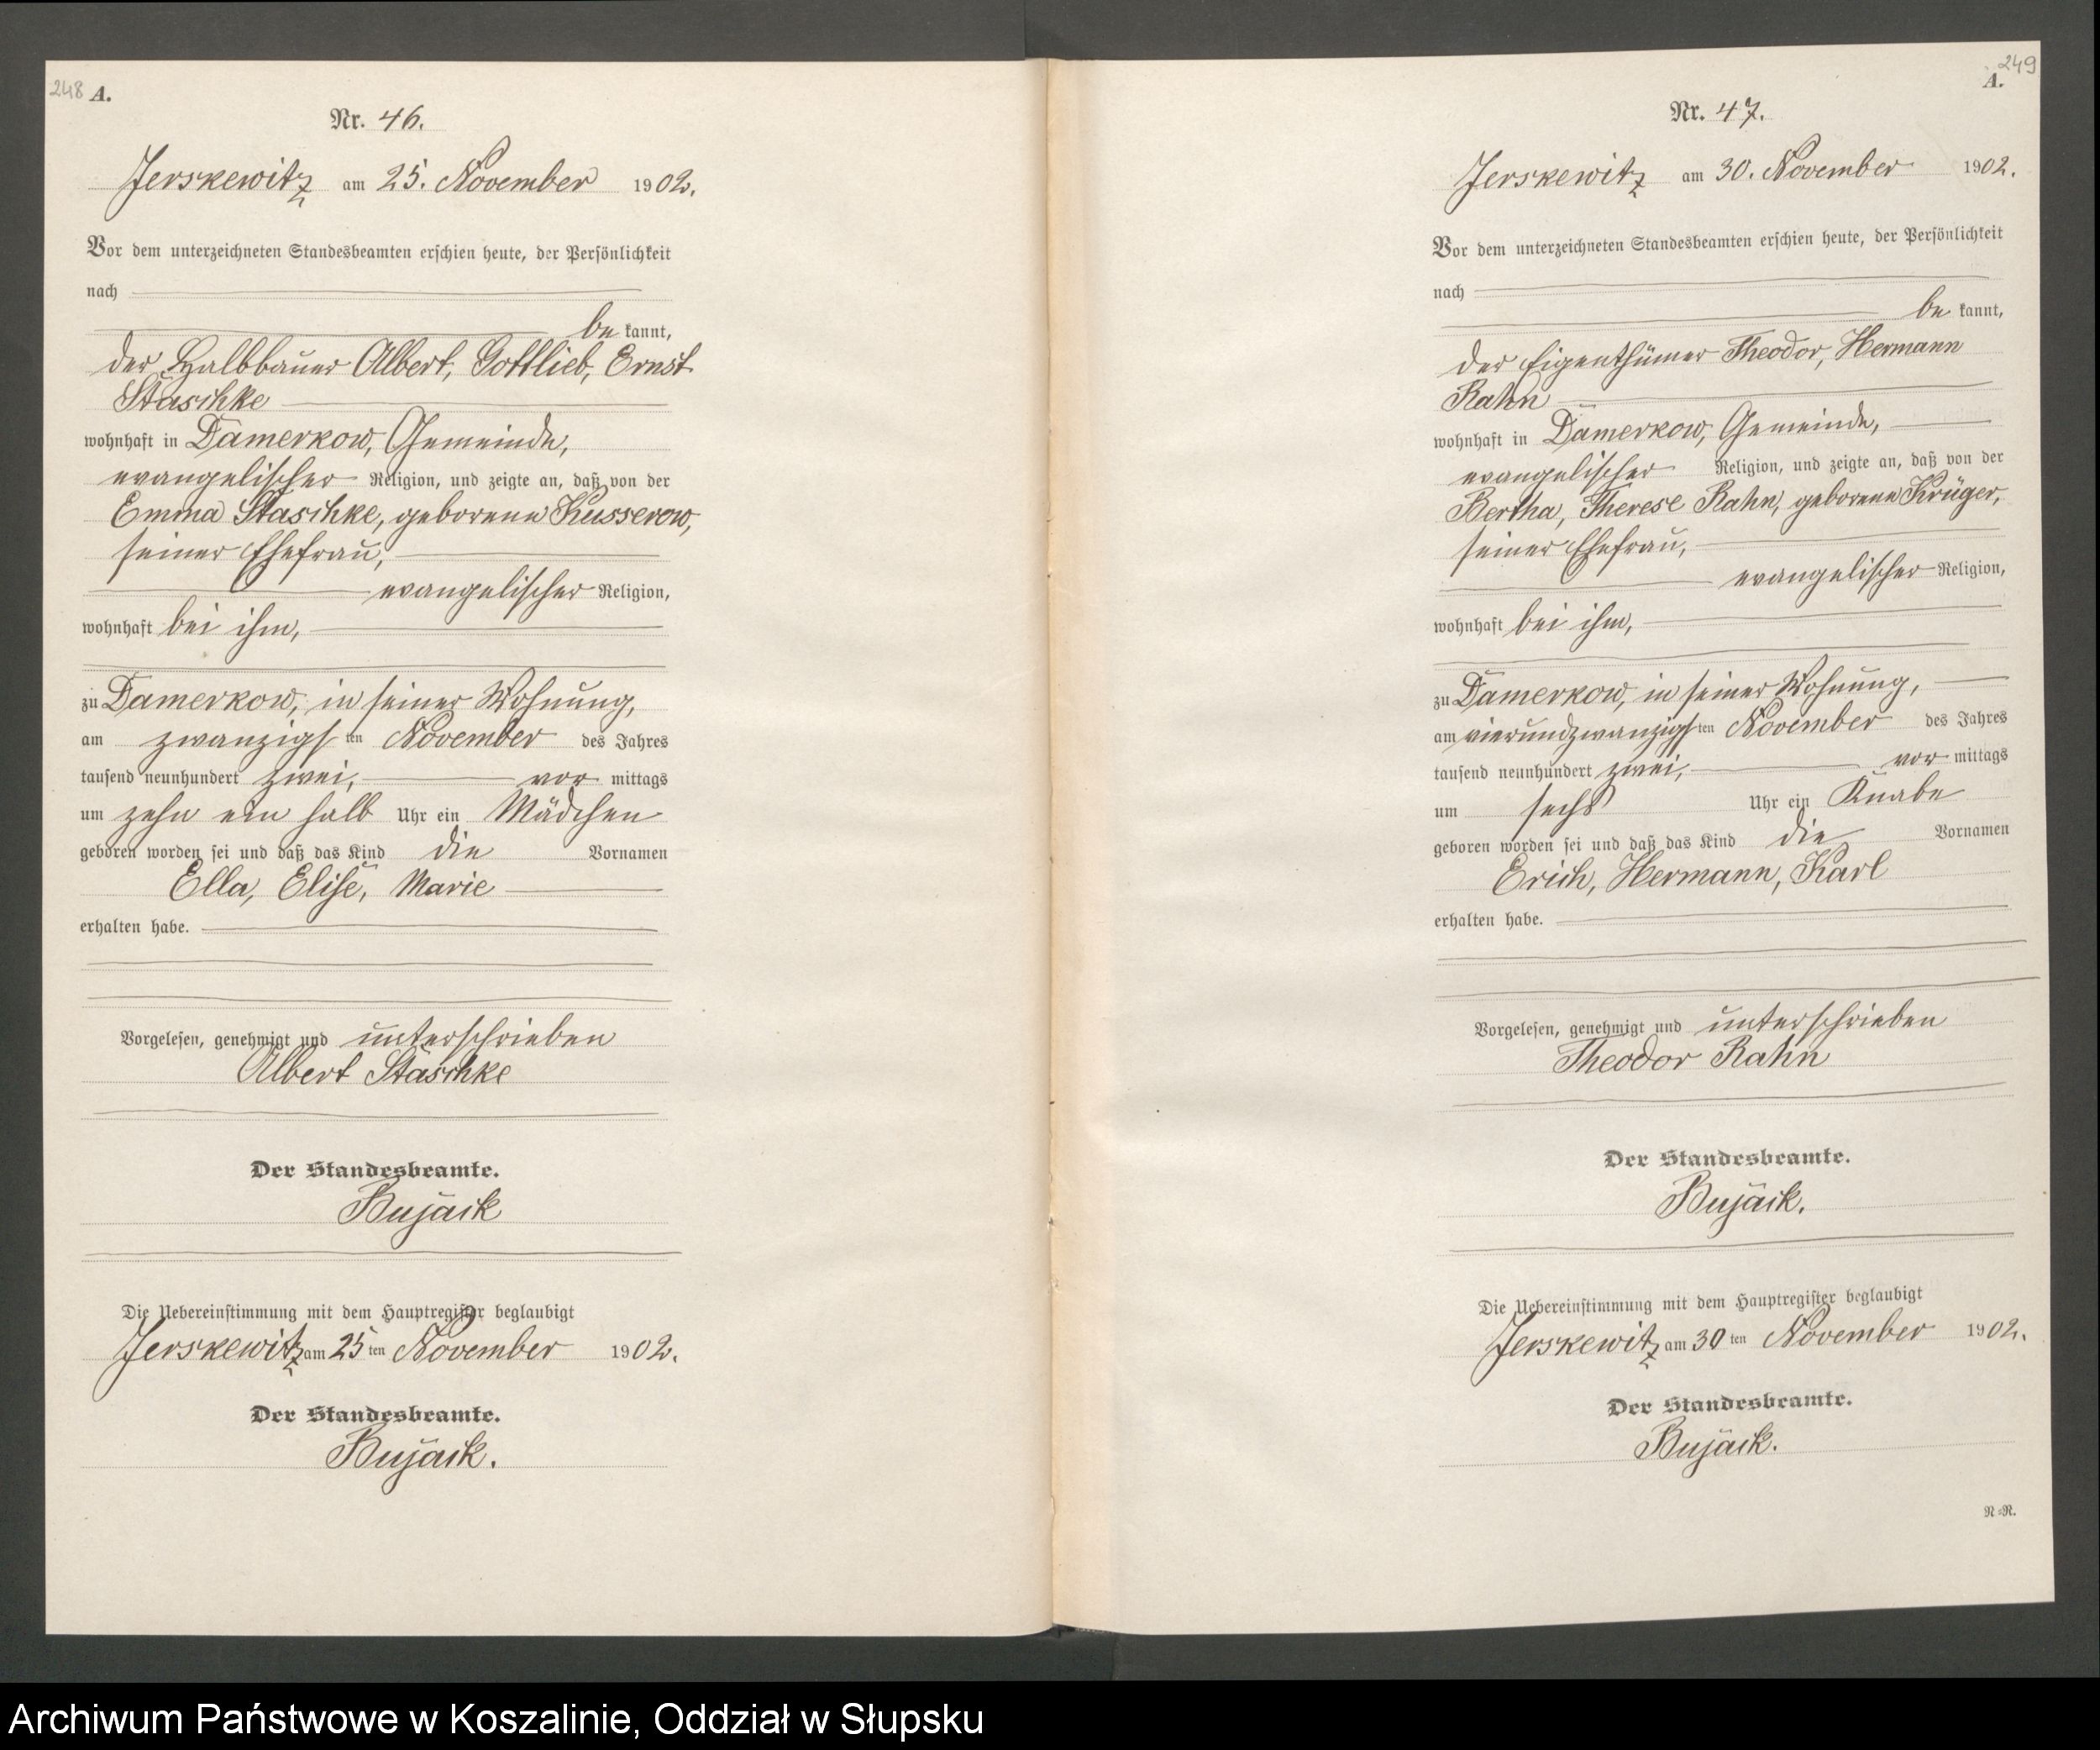 248 A.
Nr. 46.
Jerskewitz am 25. November 1902.
Vor dem unterzeichneten Standesbeamten erschien heute, der Persönlichkeit
nach
be kannt,
der Halbbauer Albert, Gottlieb, Ernst
Staschke
wohnhaft in Damerkow, Gemeinde,
evangelischer Religion, und zeigte an, daß von der
Emma Staschke, geborene Kusserow,
seiner Ehefrau,
evangelischer Religion,
wohnhaft bei ihm,
zu Damerkow, in seiner Wohnung,
am zwanzigsten November des Jahres
tausend neunhundert zwei, vor mittags
um zehn ein halb Uhr ein Mädchen
geboren worden sei und daß das Kind die Vornamen
Ella, Elise, Marie
erhalten habe.
Vorgelesen, genehmigt und unterschrieben
Albert Staschke
Der Standesbeamte.
Bujack
Die Uebereinstimmung mit dem Hauptregister beglaubigt
Jerskewitz am 25 ten November 1902.
Der Standesbeamte.
Bujack.
249
A.
Nr. 47.
Jerskewitz am 30. November 1902.
Vor dem unterzeichneten Standesbeamten erschien heute, der Persönlichkeit
nach
be kannt,
der Eigenthümer Theodor, Hermann
Rahn
wohnhaft in Damerkow, Gemeinde,
evangelischer Religion, und zeigte an, daß von der
Bertha, Therese Rahn, geborene Krüger,
seiner Ehefrau,
evangelischer Religion,
wohnhaft bei ihm,
zu Damerkow, in seiner Wohnung,
am vierundzwanzigsten November des Jahres
tausend neunhundert zwei, vor mittags
um sechs Uhr ein Knabe
geboren worden sei und daß das Kind die Vornamen
Erich, Hermann, Karl
erhalten habe.
Vorgelesen, genehmigt und unterschrieben
Theodor Rahn
Der Standesbeamte.
Bujack.
Die Uebereinstimmung mit dem Hauptregister beglaubigt
Jerskewitz am 30 ten November 1902.
Der Standesbeamte.
Bujack.
N=R.
Archiwum Państwowe w Koszalinie, Oddział w Słupsku